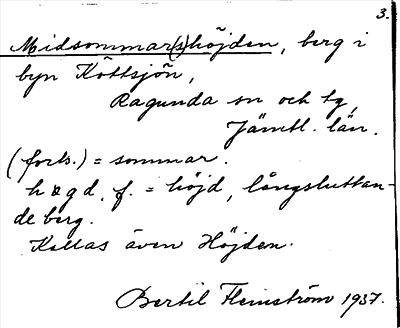 3.
Midsommar(s)höjden, berg i
byn Köttsjön,
Ragunda sn och tg,
Jämtl. län.
(forts.) = sommar.
h gd, f. = höjd, långsluttan-
de berg.
Kallas även Höjden.
Bertil Flemström 1937.